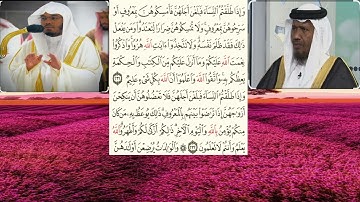 وَإِذَا طَلَّقْتُمُ ٱلنِّسَآءَ فَبَلَغْنَ أَجَلَهُنَّ فَأَمْسِكُوهُنَّ بِمَعْرُوفٍ أَوْ
سَرِّحُوهُنَّ بِمَعْرُوفٍ وَلَا تُمْسِكُوهُنَّ ضِرَارًا لِّتَعْتَدُوا۟ وَمَن يَفْعَلْ
ذَٰلِكَ فَقَدْ ظَلَمَ نَفْسَهُۥ وَلَا تَتَّخِذُوٓا۟ ءَايَـٰتِ ٱللَّهِ هُزُوًا وَٱذْكُرُوا۟
نِعْمَتَ ٱللَّهِ عَلَيْكُمْ وَمَآ أَنزَلَ عَلَيْكُم مِّنَ ٱلْكِتَـٰبِ وَٱلْحِكْمَةِ
يَعِظُكُم بِهِۦ وَٱتَّقُوا۟ ٱللَّهَ وَٱعْلَمُوٓا۟ أَنَّ ٱللَّهَ بِكُلِّ شَىْءٍ عَلِيمٌ ٢٣١
وَإِذَا طَلَّقْتُمُ ٱلنِّسَآءَ فَبَلَغْنَ أَجَلَهُنَّ فَلَا تَعْضُلُوهُنَّ أَن يَنكِحْنَ
أَزْوَٰجَهُنَّ إِذَا تَرَٰضَوْا۟ بَيْنَهُم بِٱلْمَعْرُوفِ ذَٰلِكَ يُوعَظُ بِهِۦ مَن كَانَ
مِنكُمْ يُؤْمِنُ بِٱللَّهِ وَٱلْيَوْمِ ٱلْـَٔاخِرِ ذَٰلِكُمْ أَزْكَىٰ لَكُمْ وَأَطْهَرُ وَٱللَّهُ
يَعْلَمُ وَأَنتُمْ لَا تَعْلَمُونَ ٢٣٢ وَٱلْوَٰلِدَٰتُ يُرْضِعْنَ أَوْلَـٰدَهُنَّ